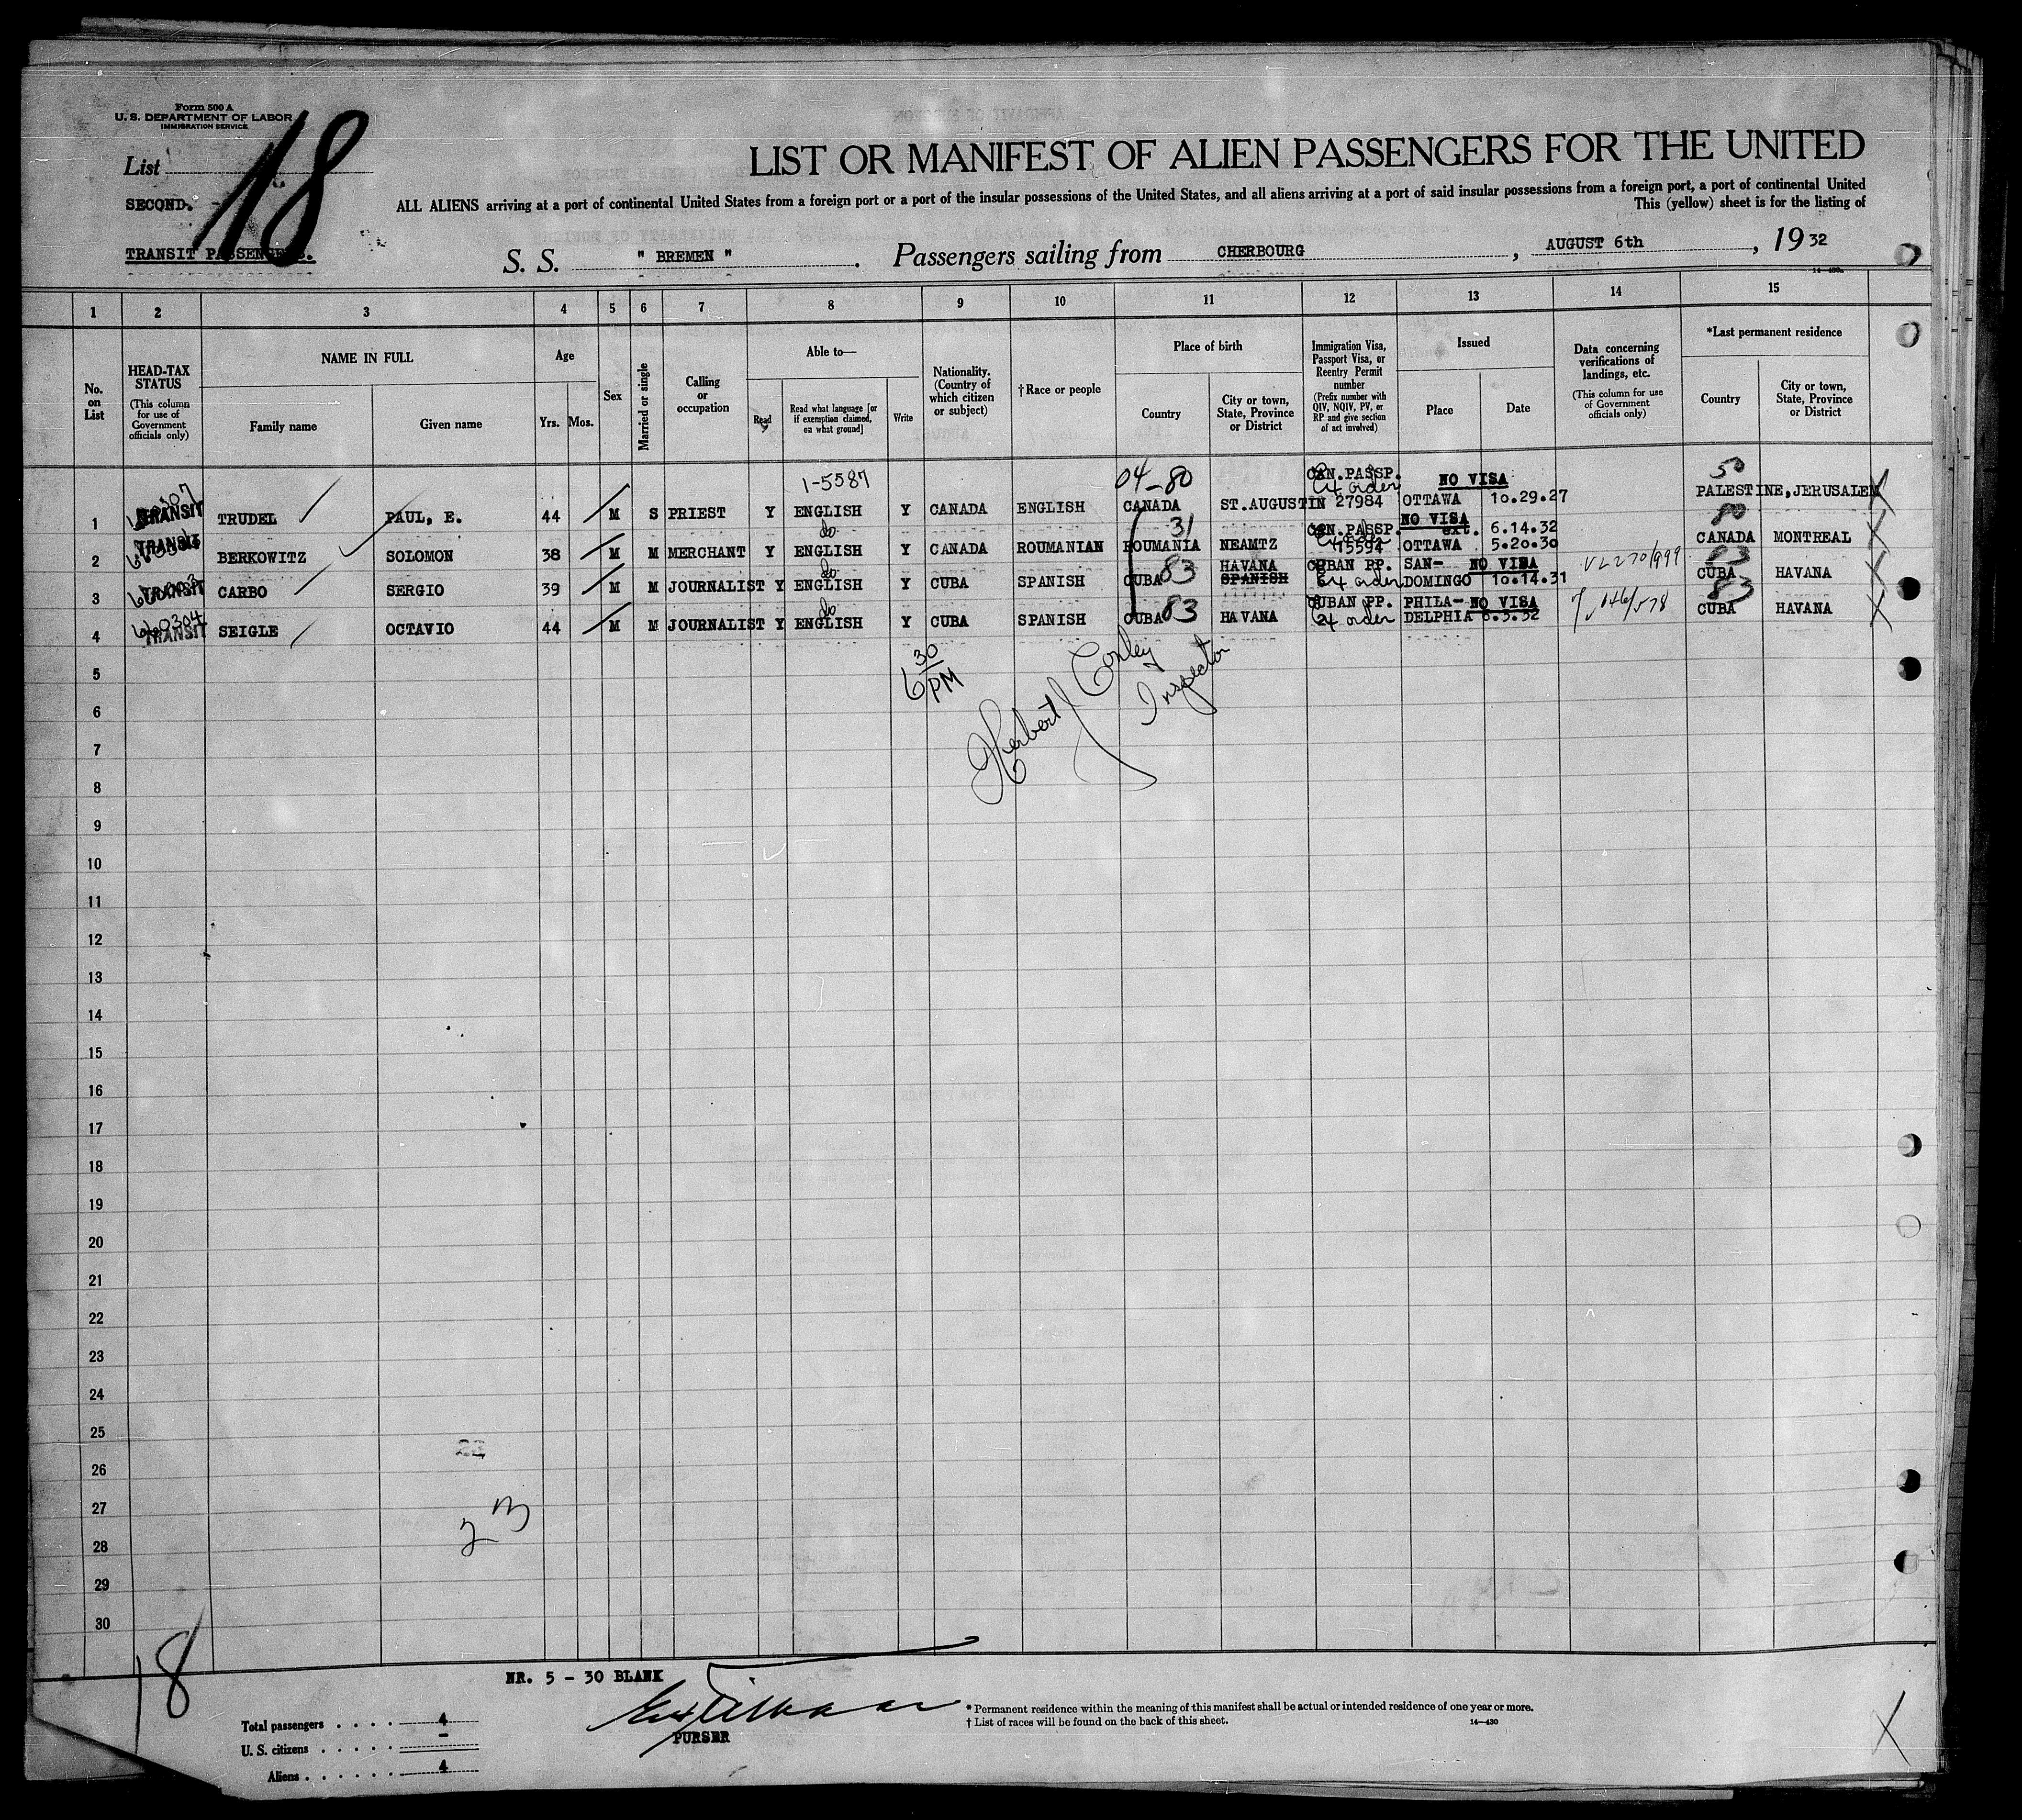 Form 500 A
U. S. DEPARTMENT OF LABOR
IMMIGRATION SERVICE
List
18
SECOND.
TRANSIT PASSENGERS.
LIST OR MANIFEST OF ALIEN PASSENGERS FOR THE UNITED
ALL ALIENS arriving at a port of continental United States from a foreign port or a port of the insular possessions of the United States, and all aliens arriving at a port of said insular possessions from a foreign port, a port of continental United
This (yellow) sheet is for the listing of
S. S. " BREMEN " . Passengers sailing from CHERBOURG , AUGUST 6th , 1932
1 2 3 4 5 6 7 8 9 10 11 12 13 14 15
No. on List
HEAD-TAX STATUS (This column for use of Government officials only)
NAME IN FULL
Family name Given name
Age
Yrs. Mos.
Sex
Married or single
Calling or occupation
Able to—
Read
Read what language [or if exemption claimed, on what ground]
Write
Nationality. (Country of which citizen or subject)
†Race or people
Place of birth
Country
City or town, State, Province or District
Immigration Visa, Passport Visa, or Reentry Permit number (Prefix number with QIV, NQIV, PV, or RP and give section of act involved)
Issued
Place Date
Data concerning verifications of landings, etc. (This column for use of Government officials only)
*Last permanent residence
Country
City or town, State, Province or District
1-5587 04-80 CAN. PASSP. NO VISA 50
1 TRANSIT TRUDEL PAUL, E. 44 M S PRIEST Y ENGLISH Y CANADA ENGLISH CANADA ST.AUGUSTIN 27984 OTTAWA 10.29.27 PALESTINE,JERUSALEM
do 31 CAN. PASSP. NO VISA ext. 6.14.32 80
2 TRANSIT BERKOWITZ SOLOMON 38 M M MERCHANT Y ENGLISH Y CANADA ROUMANIAN ROUMANIA NEAMTZ 15594 OTTAWA 5.20.30 CANADA MONTREAL
do 83 HAVANA CUBAN PP. SAN- NO VISA 83
3 TRANSIT CARBO SERGIO 39 M M JOURNALIST Y ENGLISH Y CUBA SPANISH CUBA SPANISH order DOMINGO 10.14.31 VL270/999 CUBA HAVANA
do 83 CUBAN PP. PHILA- NO VISA 83
4 TRANSIT SEIGLE OCTAVIO 44 M M JOURNALIST Y ENGLISH Y CUBA SPANISH CUBA HAVANA order DELPHIA 6.3.32 CUBA HAVANA
6 30 PM
Herbert Conley
Inspector
5
6
7
8
9
10
11
12
13
14
15
16
17
18
19
20
21
22
23
24
25
26
27
28
29
30
23
18
NR. 5 - 30 BLANK
PURSER
Total passengers . . . . 4
U. S. citizens . . . . . –
Aliens . . . . . . 4
* Permanent residence within the meaning of this manifest shall be actual or intended residence of one year or more.
† List of races will be found on the back of this sheet.
14—430